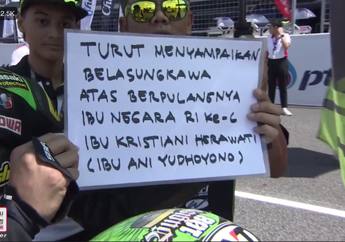 TURUT MENYAMPAIKAN
BELASUNGKAWA
ATAS BERPULANGNYA
IBU NEGARA RI KE-6
IBU KRISTIANI HERAWATI
(IBU ANI YUDHOYONO)